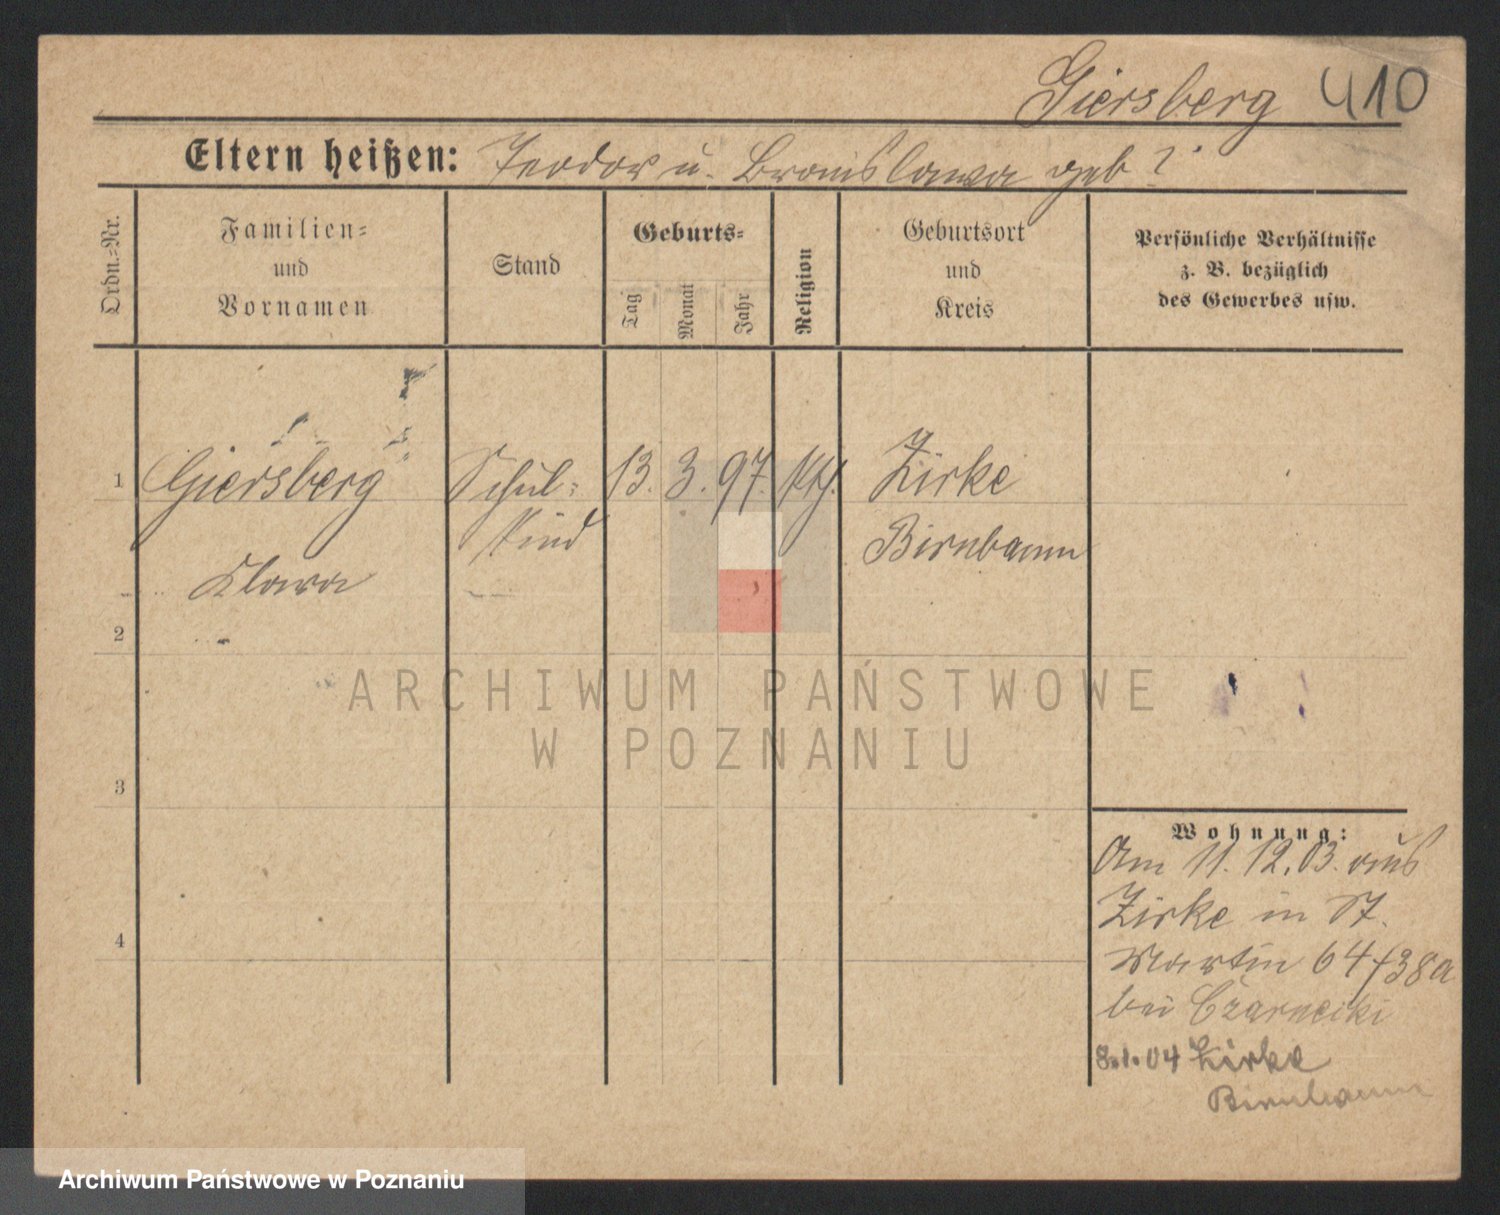 Giersberg 410
Eltern heißen: Teodor u. Bronislawa geb ?
Ordn.=Nr.
Familien=
und
Vornamen
Stand
Geburts=
Tag
Monat
Jahr
Religion
Geburtsort
und
Kreis
Persönliche Verhältnisse
z. B. bezüglich
des Gewerbes usw.
1 Giersberg Schul= 13. 3. 97. kth. Zirke
kind Birnbaum
Klara
2
3
4
Wohnung:
Am 11.12.03. aus
Zirke in St.
Martin 64/38a
bei Czarnecki
8.1.04 Zirke
Birnbaum
ARCHIWUM PAŃSTWOWE
W POZNANIU
Archiwum Państwowe w Poznaniu